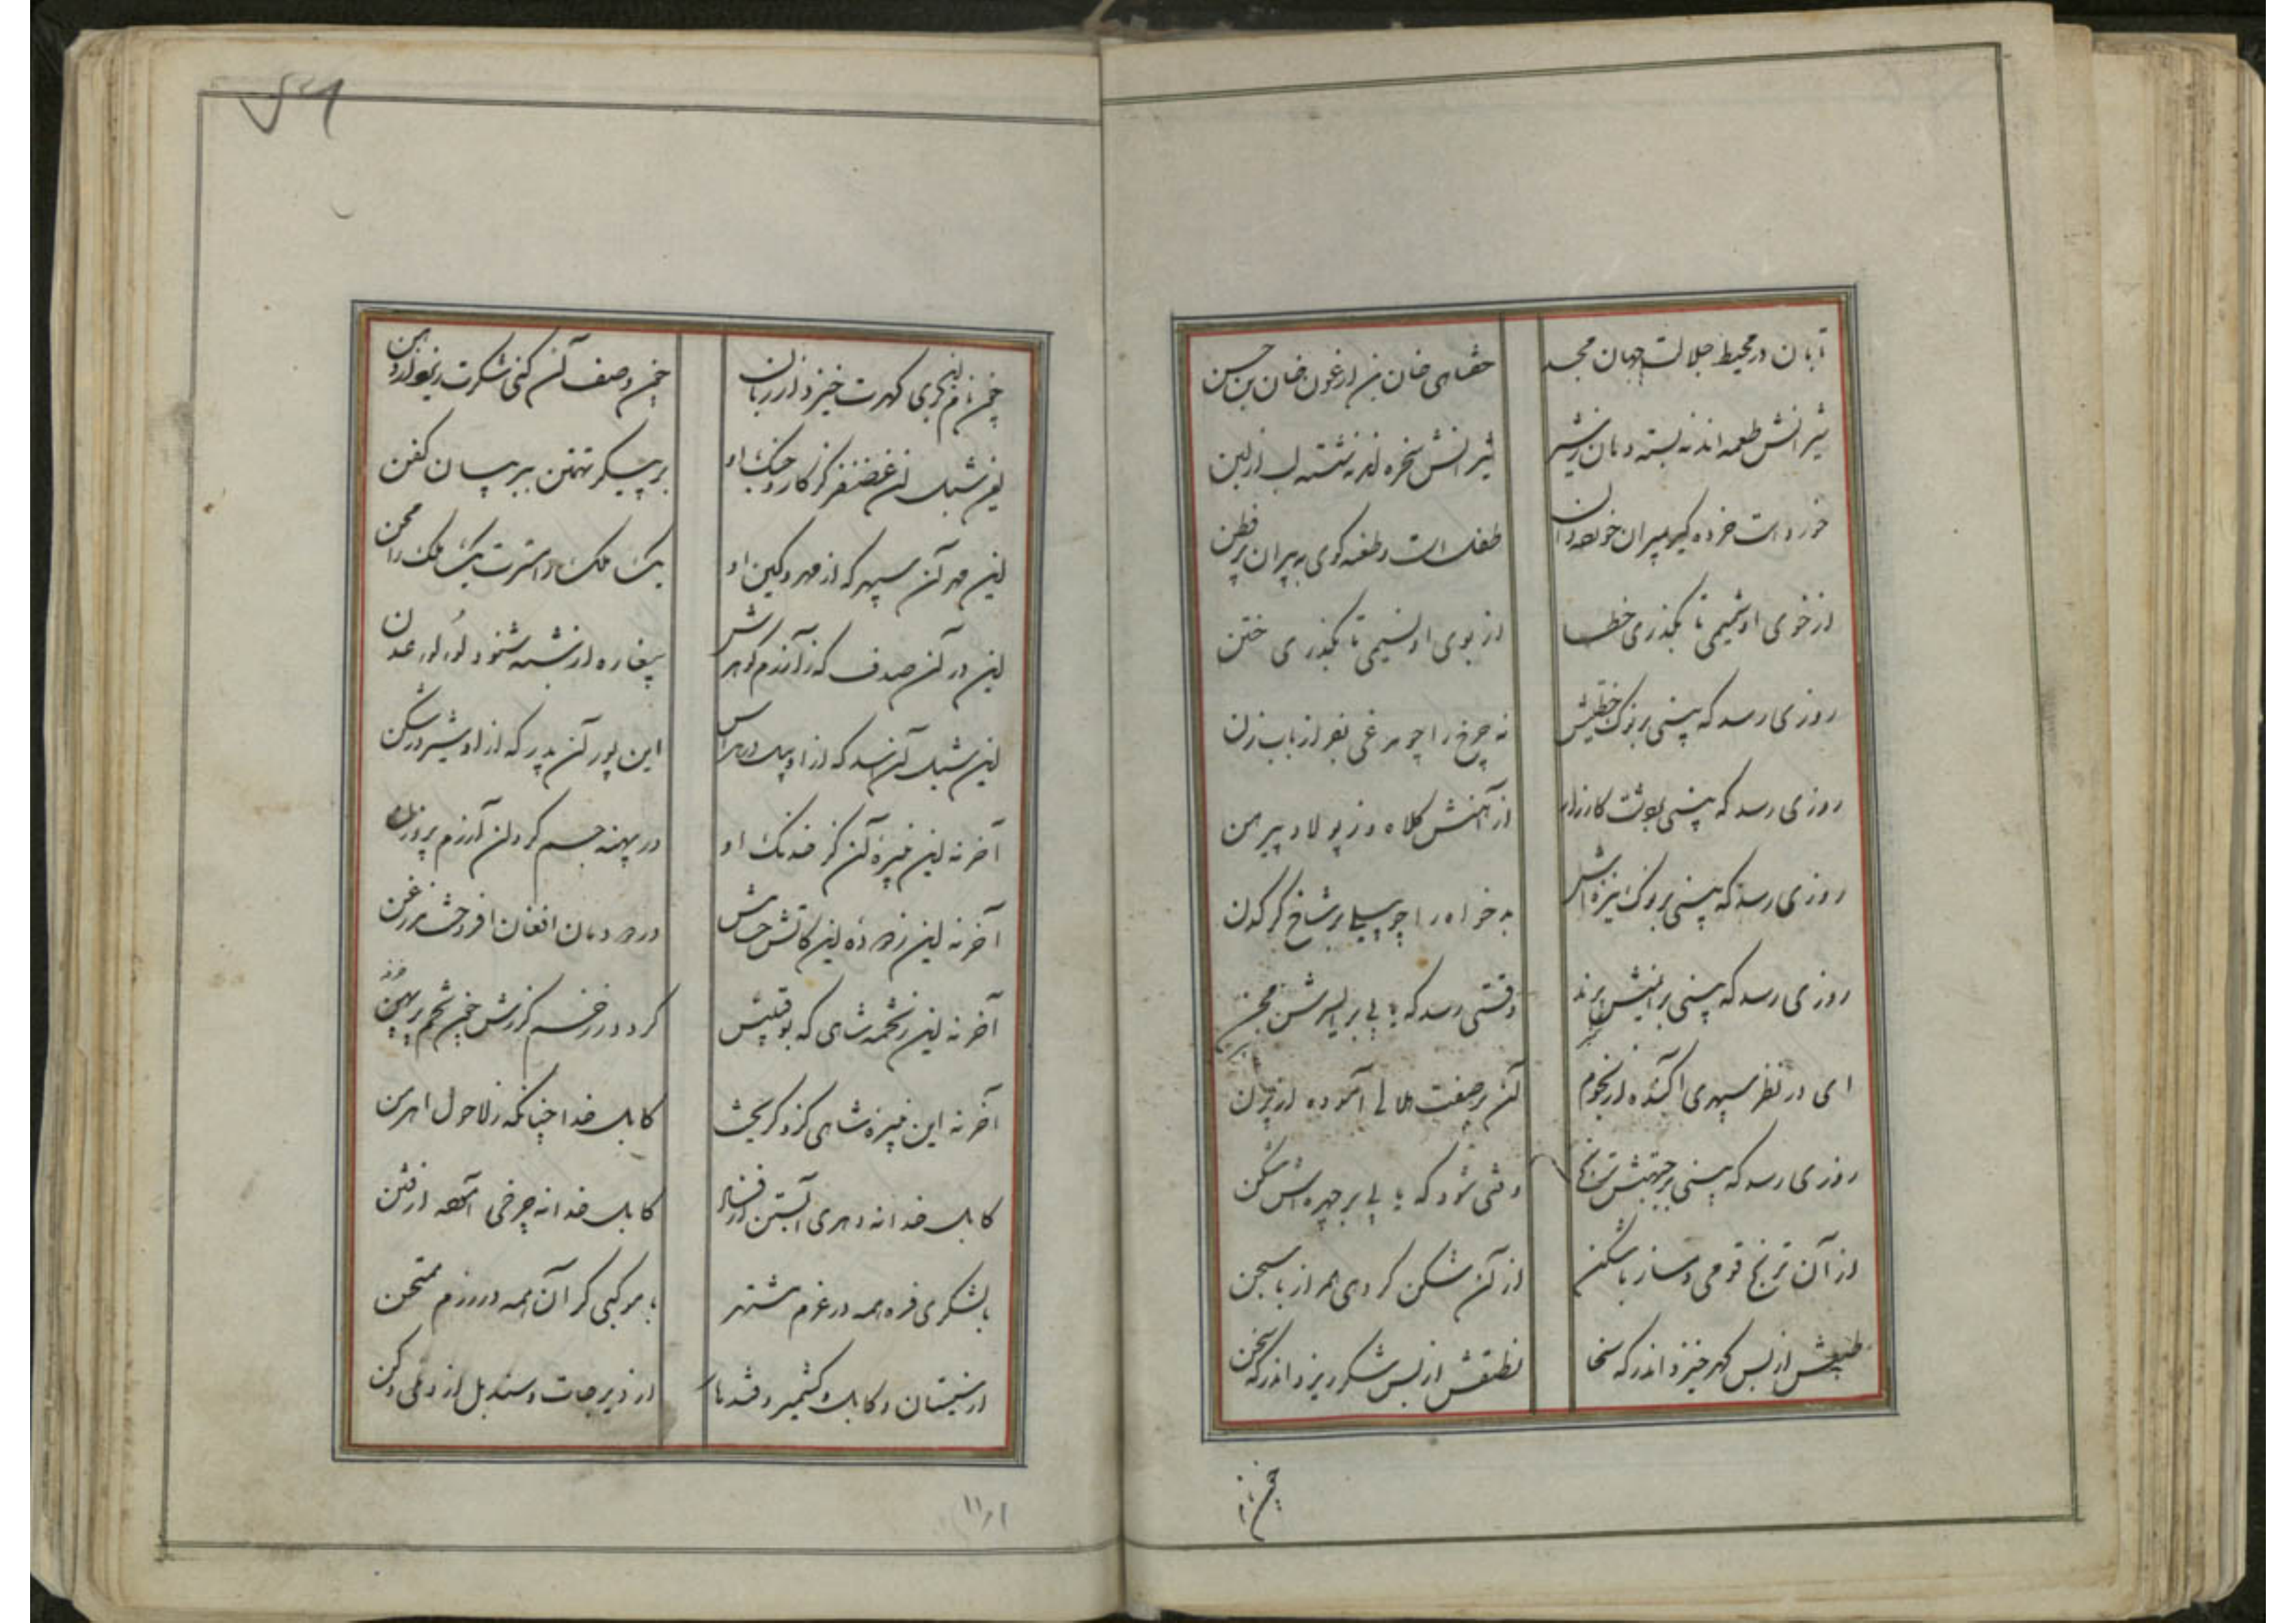 تابان در محیط جلالت جهان مجد حقای خان بن ارغون خان بن حسن
شیرانش طعمه اند نه بسته دهان ز شیر شیرانش سخره اند نه شسته لب از لبن
خورد است خرده گیر به پیران طفل است و طعنه گوی به پیران پر فطن
از خوی او شمیمی تا بگذری خطا از بوی او نسیمی تا بگذری ختن
روزی رسد که بینی بر نوک خطیش نه چرخ را چو مرغی بر بابزن
روزی رسد که بینی پوشد کارزار از آهنش کلاه و ز پولاد پیرهن
روزی رسد که بینی بر نوک نیزه اش بدخواه را چو پیلی بر شاخ کرگدن
روزی رسد که بینی برانیش پرند وقتی رسد که یابی بر اسپرش مجن
ای در نظر سپهری آکنده از نجوم آن بر صفت هلالی آموده از پرن
روزی رسد که بینی بر جبهتش ترنج وقتی شود که یابی بر چهره اش شکن
از آن ترنج قومی دمساز با شکنج از آن شکن گروهی همراز با سجن
طبعش از بس گهر خیزد اندر گه سخا نطقش از بس شکر ریزد اندر گه سخن
چین نام
چون نام این بری گهرت خیزد از زبان چون وصف آن کنی شکرت ریزد از دهن
این شبل آن غضنفر کز کار جنگ او بر پیکر تهمتن ببر بیان کفن
این مهر آن سپهر که از مهر و کین او یک ملک را مسرت یک ملک را محن
این در آن صدف که ز آزرم گوهرش پیغاره از شبه شنود لؤلؤ عدن
این شبل آن اسد که از او پیل در هراس این پور آن پدر که از او شیر در شکن
آخر نه این نبیره آن کز خدنگ او در پهنه جسم گردان آرزم پرویزن
آخر نه این ز دوده این کاتش حسامش در دودمان افغان افروخت
آخر نه این ز تخمه شاهی که بوقبیس گردد ز زخم گرزش چون پشم
آخر نه این نبیره شاهی کزو گریخت کابل خدا چنانکه ز لاحول اهرمن
کابل خدا نه دهری آبستن از فساد کابل خدا نه چرخی از فتن
با لشکری فره همه در عزم مشتهر با موکبی گران همه در رزم ممتحن
از سیستان و کابل و کشمیر و قندهار از دیرجات و سند بل از دهلی و دکن